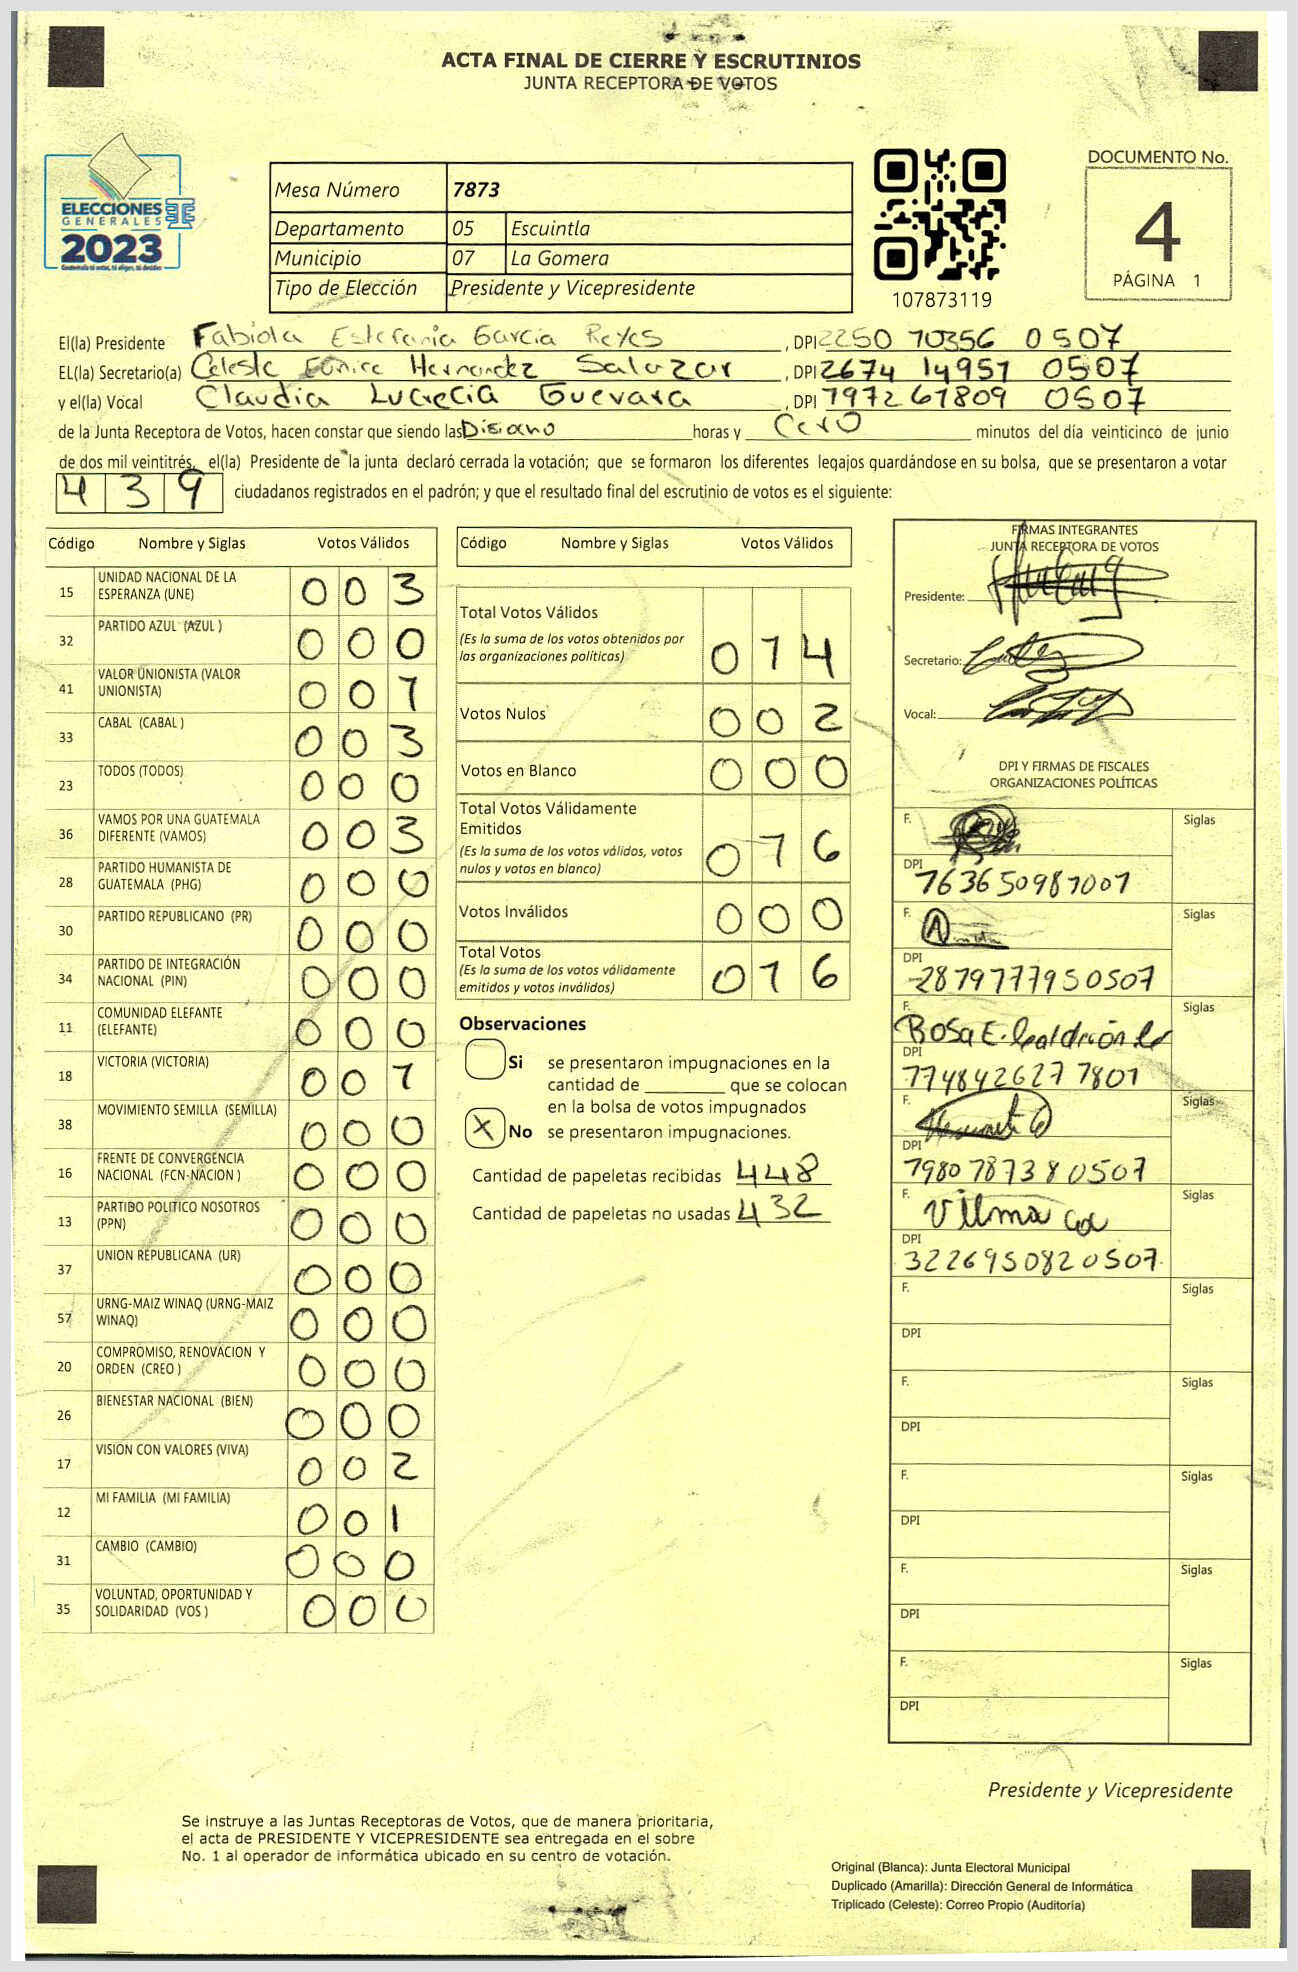 ACTA FINAL DE CIERRE Y ESCRUTINIOS
JUNTA RECEPTORA DE VOTOS
ELECCIONES
GENERALES
2023
Mesa Número 7873
Departamento 05 Escuintla
Municipio 07 La Gomera
Tipo de Elección Presidente y Vicepresidente
107873119
DOCUMENTO No.
4
PÁGINA 1
El(la) Presidente Fabiola Estefania Garcia Reyes, DPI 2250 70356 0507
EL(la) Secretario(a) Celeste Eunice Hernandez Salazar, DPI 2674 14957 0507
y el(la) Vocal Claudia Lucrecia Guevara, DPI 7972 67809 0507
de la Junta Receptora de Votos, hacen constar que siendo las horas y Cero minutos del día veinticinco de junio
de dos mil veintitrés, el(la) Presidente de la junta declaró cerrada la votación; que se formaron los diferentes legajos guardándose en su bolsa, que se presentaron a votar
439 ciudadanos registrados en el padrón; y que el resultado final del escrutinio de votos es el siguiente:
Código Nombre y Siglas Votos Válidos
15 UNIDAD NACIONAL DE LA ESPERANZA (UNE) 003
32 PARTIDO AZUL (AZUL ) 000
41 VALOR UNIONISTA (VALOR UNIONISTA) 001
33 CABAL (CABAL ) 003
23 TODOS (TODOS) 000
36 VAMOS POR UNA GUATEMALA DIFERENTE (VAMOS) 003
28 PARTIDO HUMANISTA DE GUATEMALA (PHG) 000
30 PARTIDO REPUBLICANO (PR) 000
34 PARTIDO DE INTEGRACIÓN NACIONAL (PIN) 000
11 COMUNIDAD ELEFANTE (ELEFANTE) 000
18 VICTORIA (VICTORIA) 001
38 MOVIMIENTO SEMILLA (SEMILLA) 000
16 FRENTE DE CONVERGENCIA NACIONAL (FCN-NACION ) 000
13 PARTIDO POLITICO NOSOTROS (PPN) 000
37 UNION REPUBLICANA (UR) 000
57 URNG-MAIZ WINAQ (URNG-MAIZ WINAQ) 000
20 COMPROMISO, RENOVACION Y ORDEN (CREO ) 000
26 BIENESTAR NACIONAL (BIEN) 000
17 VISION CON VALORES (VIVA) 002
12 MI FAMILIA (MI FAMILIA) 001
31 CAMBIO (CAMBIO) 000
35 VOLUNTAD, OPORTUNIDAD Y SOLIDARIDAD (VOS ) 000
Código Nombre y Siglas Votos Válidos
Total Votos Válidos
(Es la suma de los votos obtenidos por
las organizaciones políticas) 014
Votos Nulos 002
Votos en Blanco 000
Total Votos Válidamente
Emitidos
(Es la suma de los votos válidos, votos
nulos y votos en blanco) 016
Votos Inválidos 000
Total Votos
(Es la suma de los votos válidamente
emitidos y votos inválidos) 016
Observaciones
Si se presentaron impugnaciones en la
cantidad de ________ que se colocan
en la bolsa de votos impugnados
X No se presentaron impugnaciones.
Cantidad de papeletas recibidas 448
Cantidad de papeletas no usadas 432
FIRMAS INTEGRANTES
JUNTA RECEPTORA DE VOTOS
Presidente:
Secretario:
Vocal:
DPI Y FIRMAS DE FISCALES
ORGANIZACIONES POLÍTICAS
F. Siglas
DPI 763650987001
F. Siglas
DPI 2879777950507
F. Rosa E. Siglas
DPI 7748426277801
F. Siglas
DPI 7980787380507
F. Vilma Siglas
DPI 3226950820507
F. Siglas
DPI
F. Siglas
DPI
F. Siglas
DPI
F. Siglas
DPI
F. Siglas
DPI
Presidente y Vicepresidente
Se instruye a las Juntas Receptoras de Votos, que de manera prioritaria,
el acta de PRESIDENTE Y VICEPRESIDENTE sea entregada en el sobre
No. 1 al operador de informática ubicado en su centro de votación.
Original (Blanca): Junta Electoral Municipal
Duplicado (Amarilla): Dirección General de Informática
Triplicado (Celeste): Correo Propio (Auditoría)